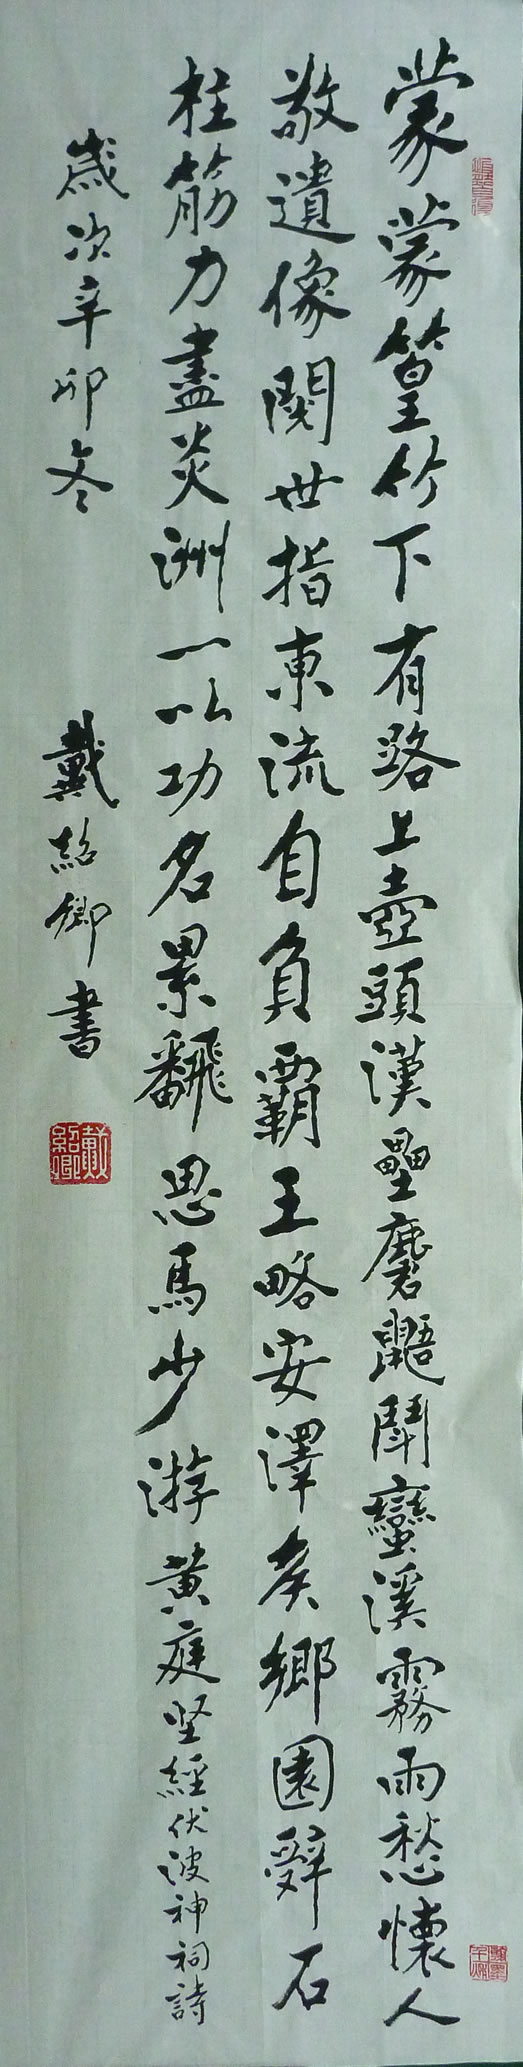 蒙蒙篁竹下有路上壺頭漢壘麏鼯鬥蠻溪霧雨愁懷人
敬遺像閱世指東流自負霸王略安澤矦鄉園辭石
柱筋力盡炎洲一以功名累飜思馬少游黄庭坚經伏波神祠詩
歲次辛卯冬 戴紹卿書
戴紹卿